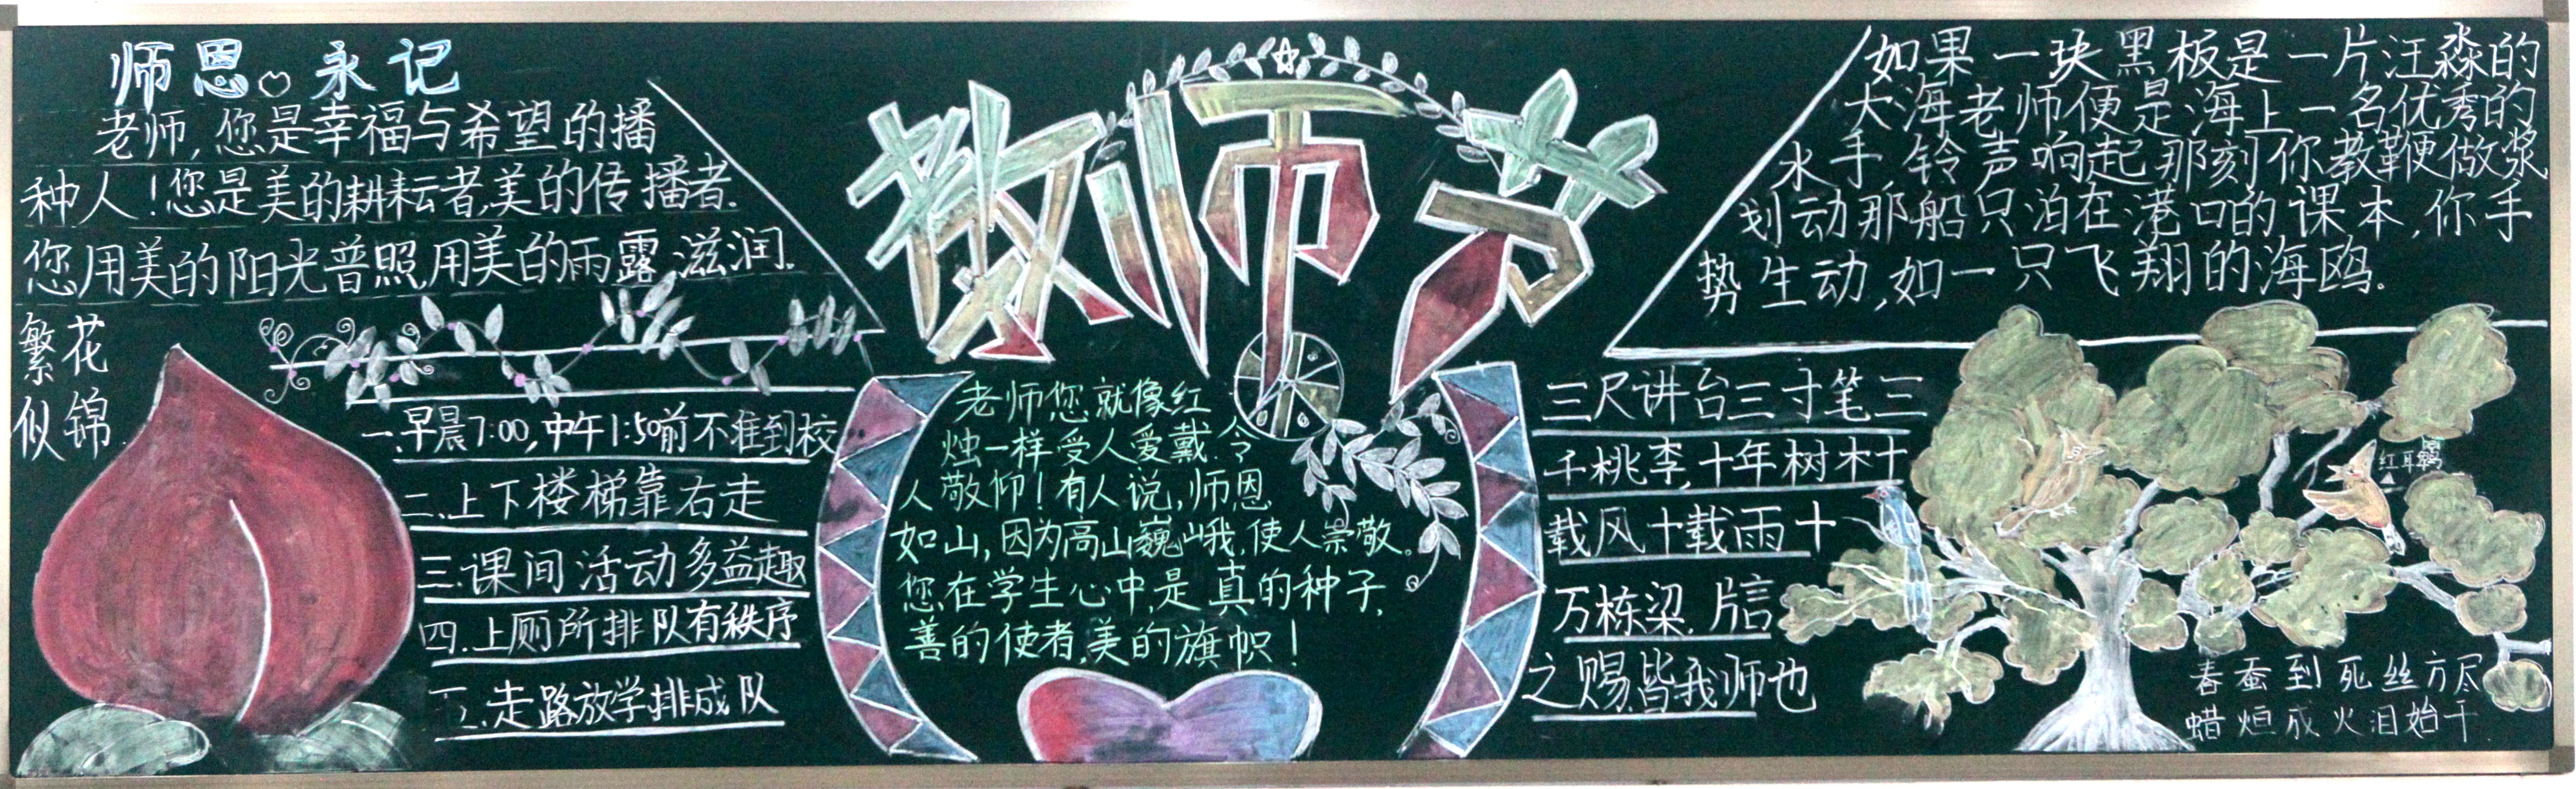 师恩永记
老师,您是幸福与希望的播
种人!您是美的耕耘者,美的传播者.
您用美的阳光普照,用美的雨露滋润.
繁花
似锦
一.早晨7:00,中午1:50前不准到校
二.上下楼梯靠右走
三.课间活动多益趣
四.上厕所排队有秩序
五.走路放学排成队
教师节
老师您就像红
烛一样受人爱戴.令
人敬仰!有人说,师恩
如山,因为高山巍峨,使人崇敬。
您在学生心中,是真的种子,
善的使者,美的旗帜!
如果一块黑板是一片汪淼的
大海老师便是海上一名优秀的
水手,铃声响起那刻你教鞭做浆
划动那船只泊在港口的课本,你手
势生动,如一只飞翔的海鸥.
三尺讲台三寸笔三
千桃李,十年树木十
载风十载雨十
万栋梁.片言
之赐,皆我师也
春蚕到死丝方尽
蜡烜成火泪始干.